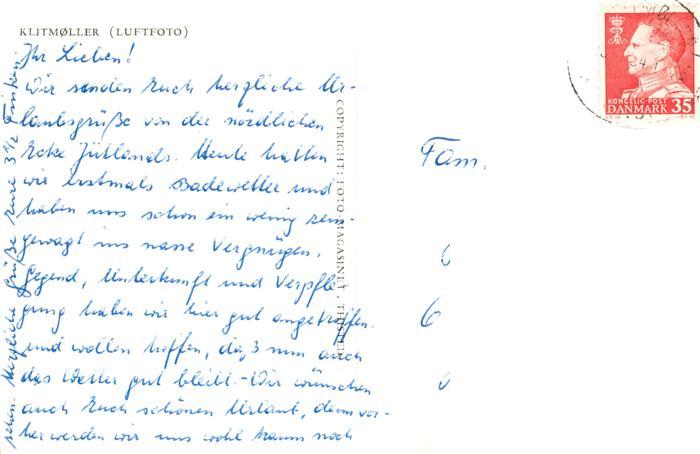 KLITMØLLER (LUFTFOTO)
Ihr Lieben!
Wir senden Euch herzliche Ur-
laubsgrüße von der nördlichen
Ecke Jütlands. Heute hatten
wir erstmals Badewetter und
haben uns schon ein wenig rein-
gewagt ins nasse Vergnügen.
Gegend, Unterkunft und Verpfle-
gung haben wir hier gut angetroffen
und wollen hoffen, daß nun auch
das Wetter gut bleibt. - Wir wünschen
auch Euch schönen Urlaub, denn vor-
her werden wir uns wohl kaum noch
sehen. Herzliche Grüße Eure 3 1/2 Finken
COPYRIGHT: FOTO-MAGASINET, THISTED
Fam.
6
6
KONGELIG POST
DANMARK 35